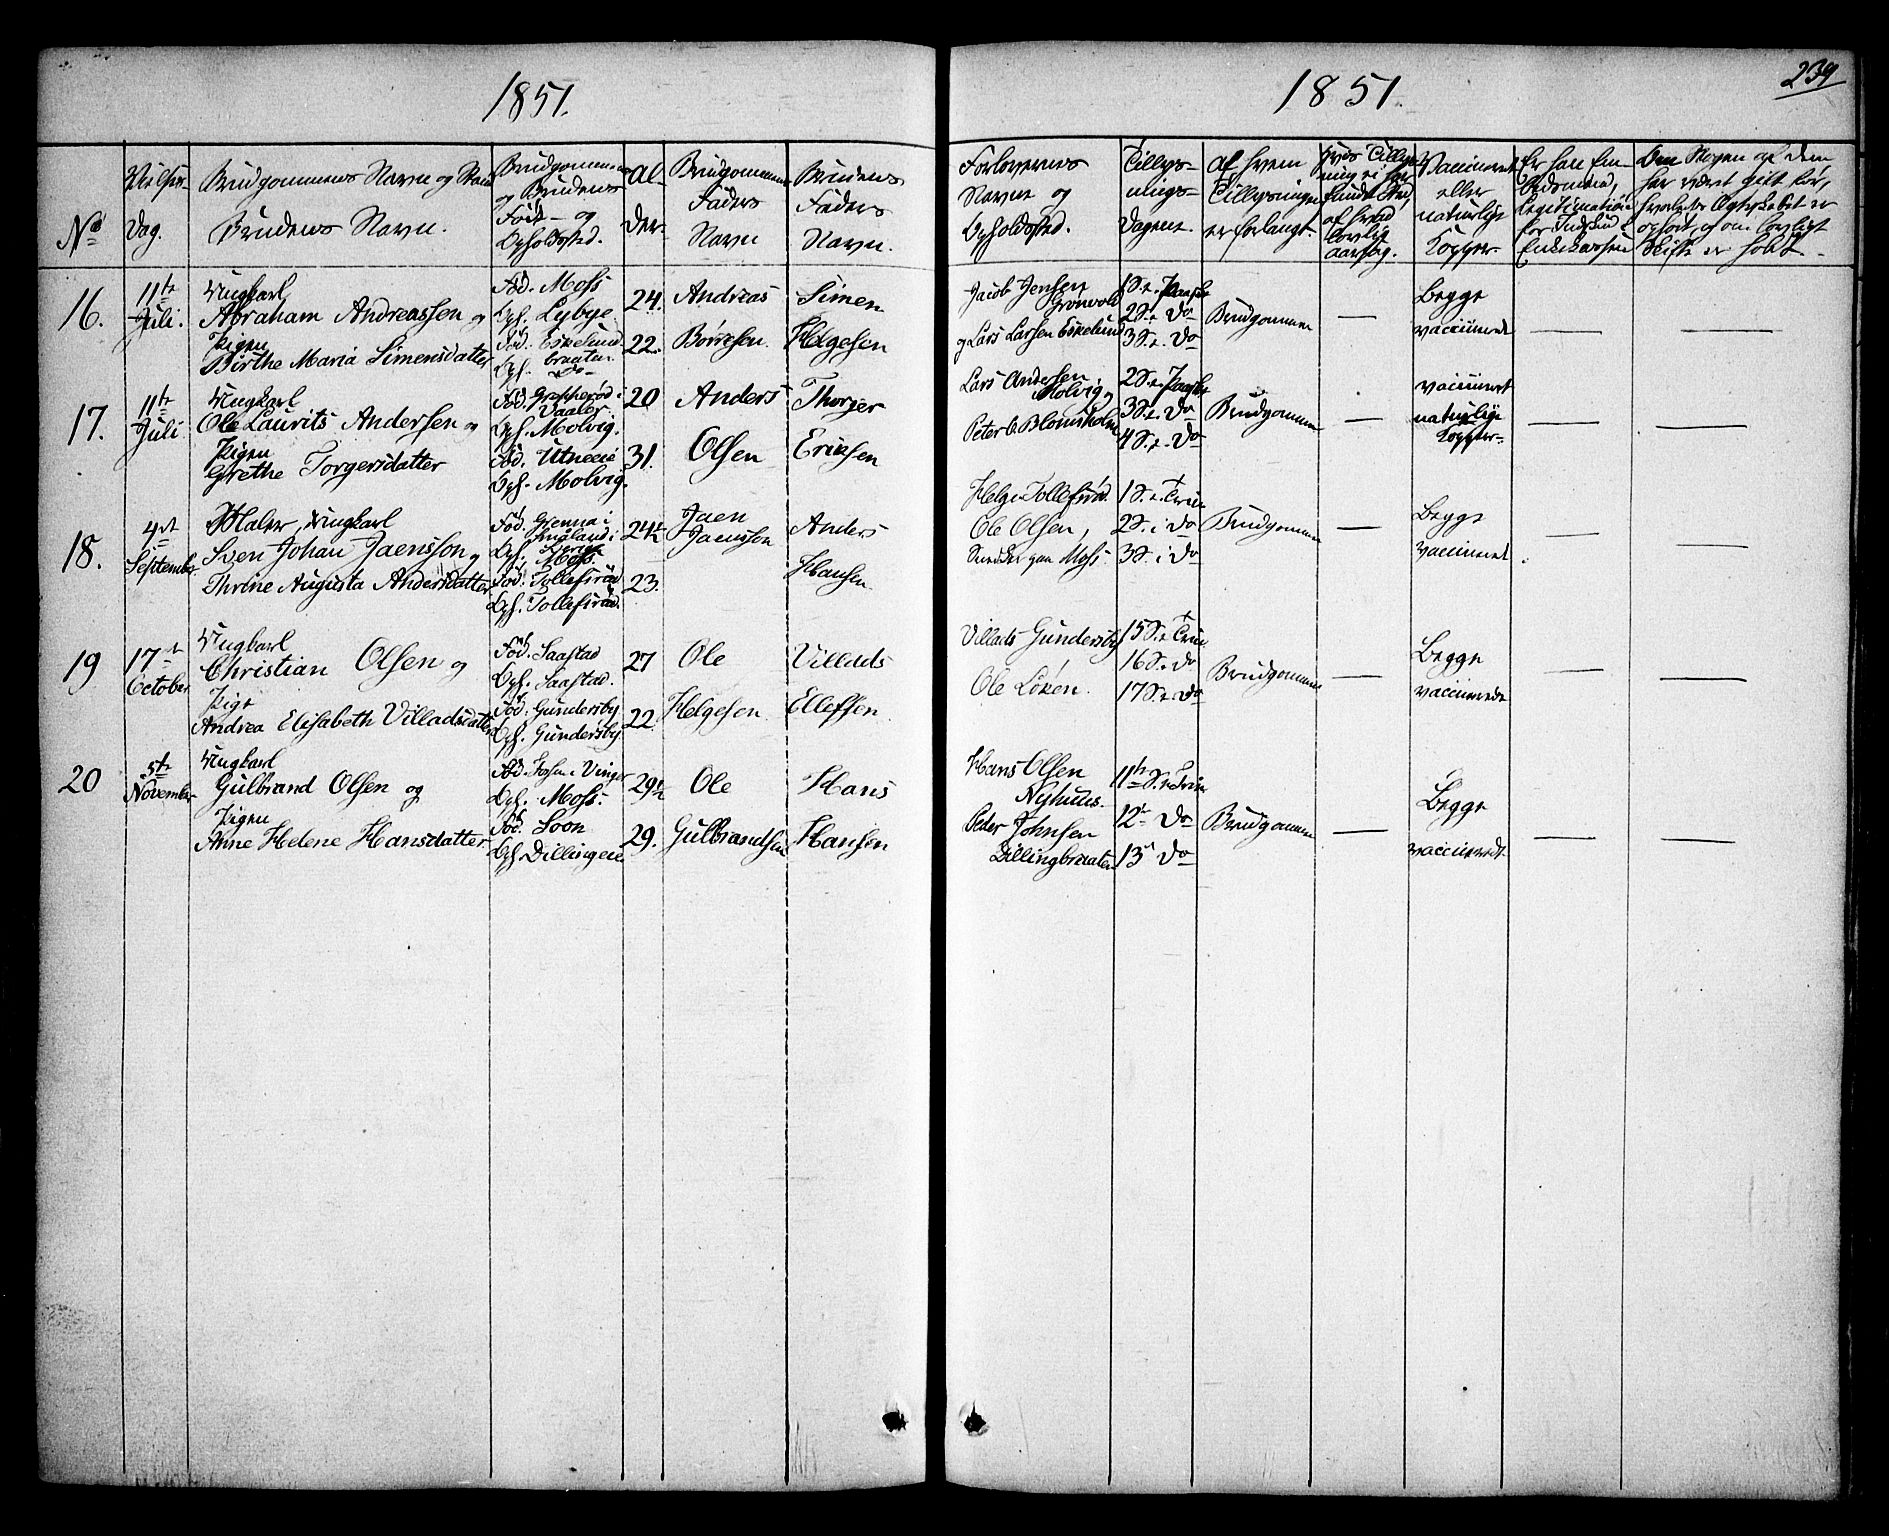 1851.
1851.
239
No
Vielses-
Dag.
Brudgommens Navn og
Brudens Navn.
Brudgommens
og Brudens
Føde- og
Opholdssted.
Al-
der.
Brudgommens
Faders
Navn
Brudens
Faders
Navn.
Forloverens
Navne og
Opholdsted.
Tillys-
nings-
Dagene.
af hvem
Tillysningen
er forlangt.
Hvis Tillys-
ning ei har
fundet Sted,
af hvad
lovlig
aarsag.
Vaccineret
eller
naturlige
Kopper.
Er han
Legitimation
for Indskud i
Enkekassen
Om Nogen af dem
har været gift før,
hvorledes Ægteskabet er
ophørt, og om lovligt
Skifte er holdt.
16.
11te
Juli.
Ungkarl
Abraham Andreassen og
Pigen
Birthe Maria Simensdatter
Fød. Moss
Oph. Lybye
Fød. Eskelund
braaten
Oph. do
24.
22.
Andreas
Børresen.
Simen
Helgesen
Jacob Jensen
Grønvold
og Lars Larsen Eskelund
1 S. e. Paaske
2 S. e. Do
3 S. e. Do
Brudgommen
—
Begge
vaccinerede
—
—
17.
11te
Juli
Ungkarl
Ole Laurits Andersen og
Pigen
Grethe Torgersdatter
Fød. Grepperød i
Vaaler
Oph. Molvig.
Fød. Utneeie
Oph. Molvig.
20
31.
Anders
Olsen
Thorger
Eriksen
Lars Andersen
Molvig og
Peter O. Blomsholm
2 S. e. Paaske
3 S. e. Do
4 S. e. Do
Brudgommen
—
vaccineret
naturlige
Kopper.
—
—
18.
4de
September
Maler, Ungkarl
Sven Johan Jaensson og
Thrine Augusta Andersdatter
Fød. Grenna i
Småland i
Sverige
Oph. Moss.
Fød. Tollefsrød
Oph. Tollefsrød.
24½
23.
Jaen
Jaensson
Anders
Hansen
Helge Tollefsrød.
Ole Olsen,
Snedker paa Moss.
1 S. e. Trin
2 S. i Do
3 S. i Do
Brudgommen
—
Begge
vaccineret
—
—
19
17de
October
Ungkarl
Christian Olsen og
Pige
Andrea Elisabeth Villadsdatter
Fød. Saastad
Oph. Saastad.
Fød. Gundersby
Oph. Gundersby.
27
22
Ole
Helgesen
Villads
Ellefsen
Villads Gundersby
Ole Løken.
15 S. e. Trin
16 S. e. Do
17 S. e. Do
Brudgommen
—
Begge
vaccinerede
—
—
20
5te
November
Ungkarl
Gulbrand Olsen og
Pigen
Anne Helene Hansdatter
Fød. i Vinger
Oph. Moss.
Fød. Soon
Oph. Dillingeie
29½
29.
Ole
Gulbrandsen
Hans
Hansen
Hans Olsen
Nyhuus.
Peder Johnsen
Dillingbraaten
11te S. e. Trin
12te Do
13de Do
Brudgommen
—
Begge
vaccineredt.
—
—